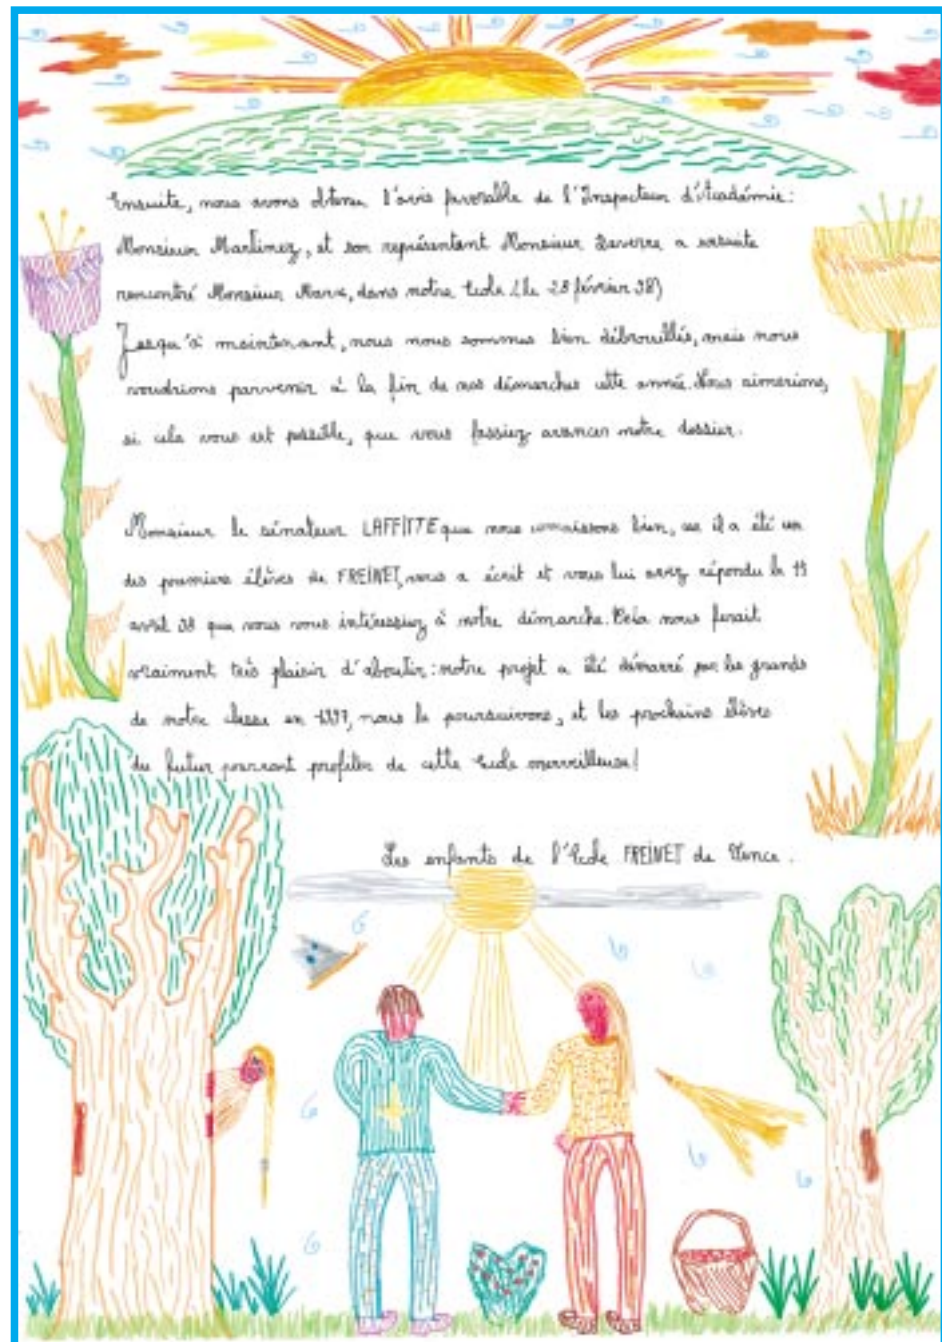 Ensuite, nous avons obtenu l'avis favorable de l'Inspecteur d'Académie:
Monsieur Martinez, et son représentant Monsieur Daverre a ensuite
rencontré Monsieur Marx, dans notre Ecole (le 28 février 98)
Jusqu'à maintenant, nous nous sommes bien débrouillés, mais nous
voudrions parvenir à la fin de nos démarches cette année. Nous aimerions,
si cela vous est possible, que vous fassiez avancer notre dossier.
Monsieur le sénateur LAFFITTE que nous connaissons bien, car il a été un
des premiers élèves de FREINET, vous a écrit et vous lui avez répondu le
avril 98 que vous vous intéressiez à notre démarche. Cela nous ferait
vraiment très plaisir d'aboutir: notre projet a été démarré par les grands
de notre classe en 1997, nous le poursuivons, et les prochains élèves
du futur pourront profiter de cette Ecole merveilleuse!
Les enfants de l'Ecole FREINET de Vence.